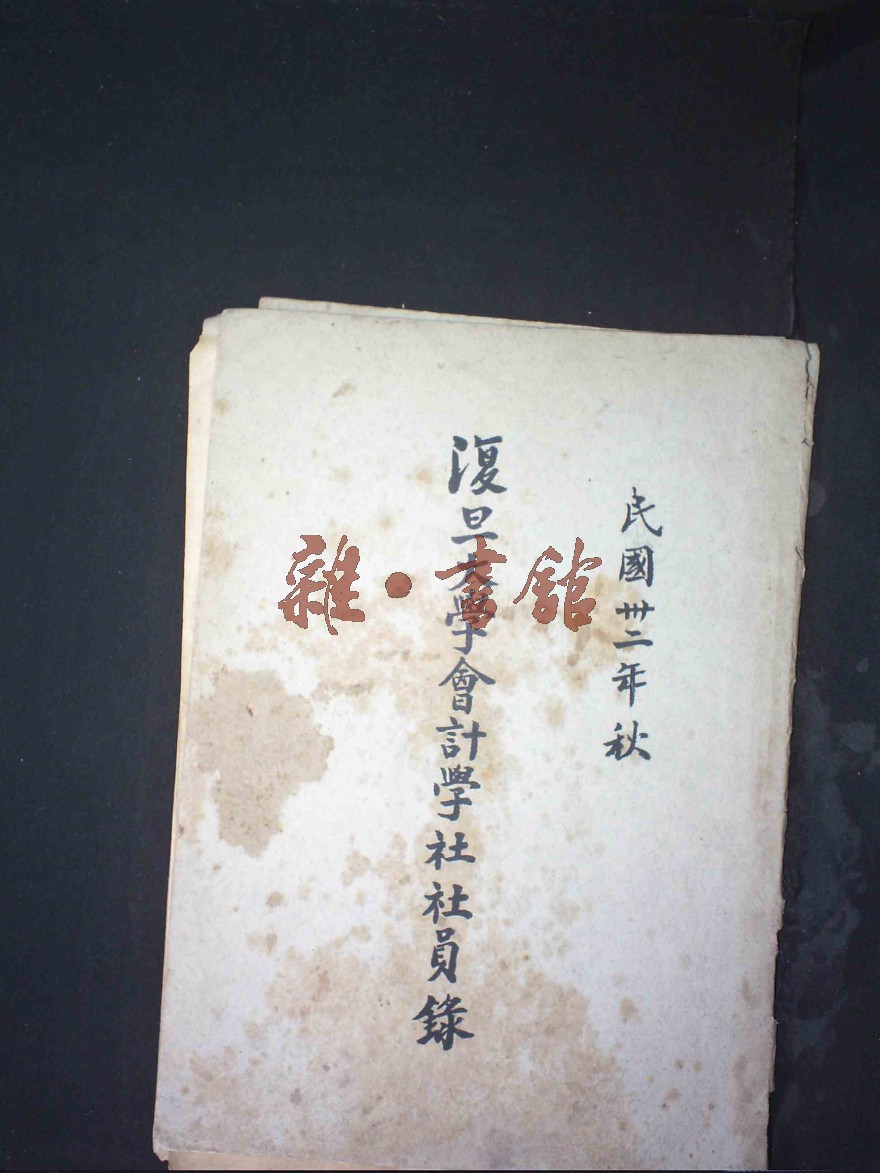 民國卅二年秋
復旦大學會計學社社員錄
雜·書館